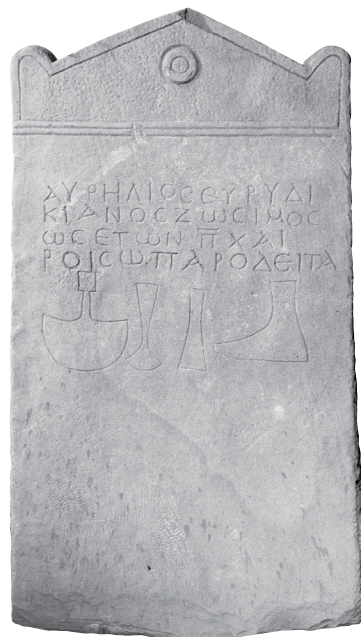 ΑΥΡΗΛΙΟϹΕΥΡΥΔΙ
ΚΙΑΝΟϹΖΩϹΙΜΟϹ
ΩϹΕΤΩΝ Π̅ ΧΑΙ
ΡΟΙϹΩΠΑΡΟΔΕΙΤΑ